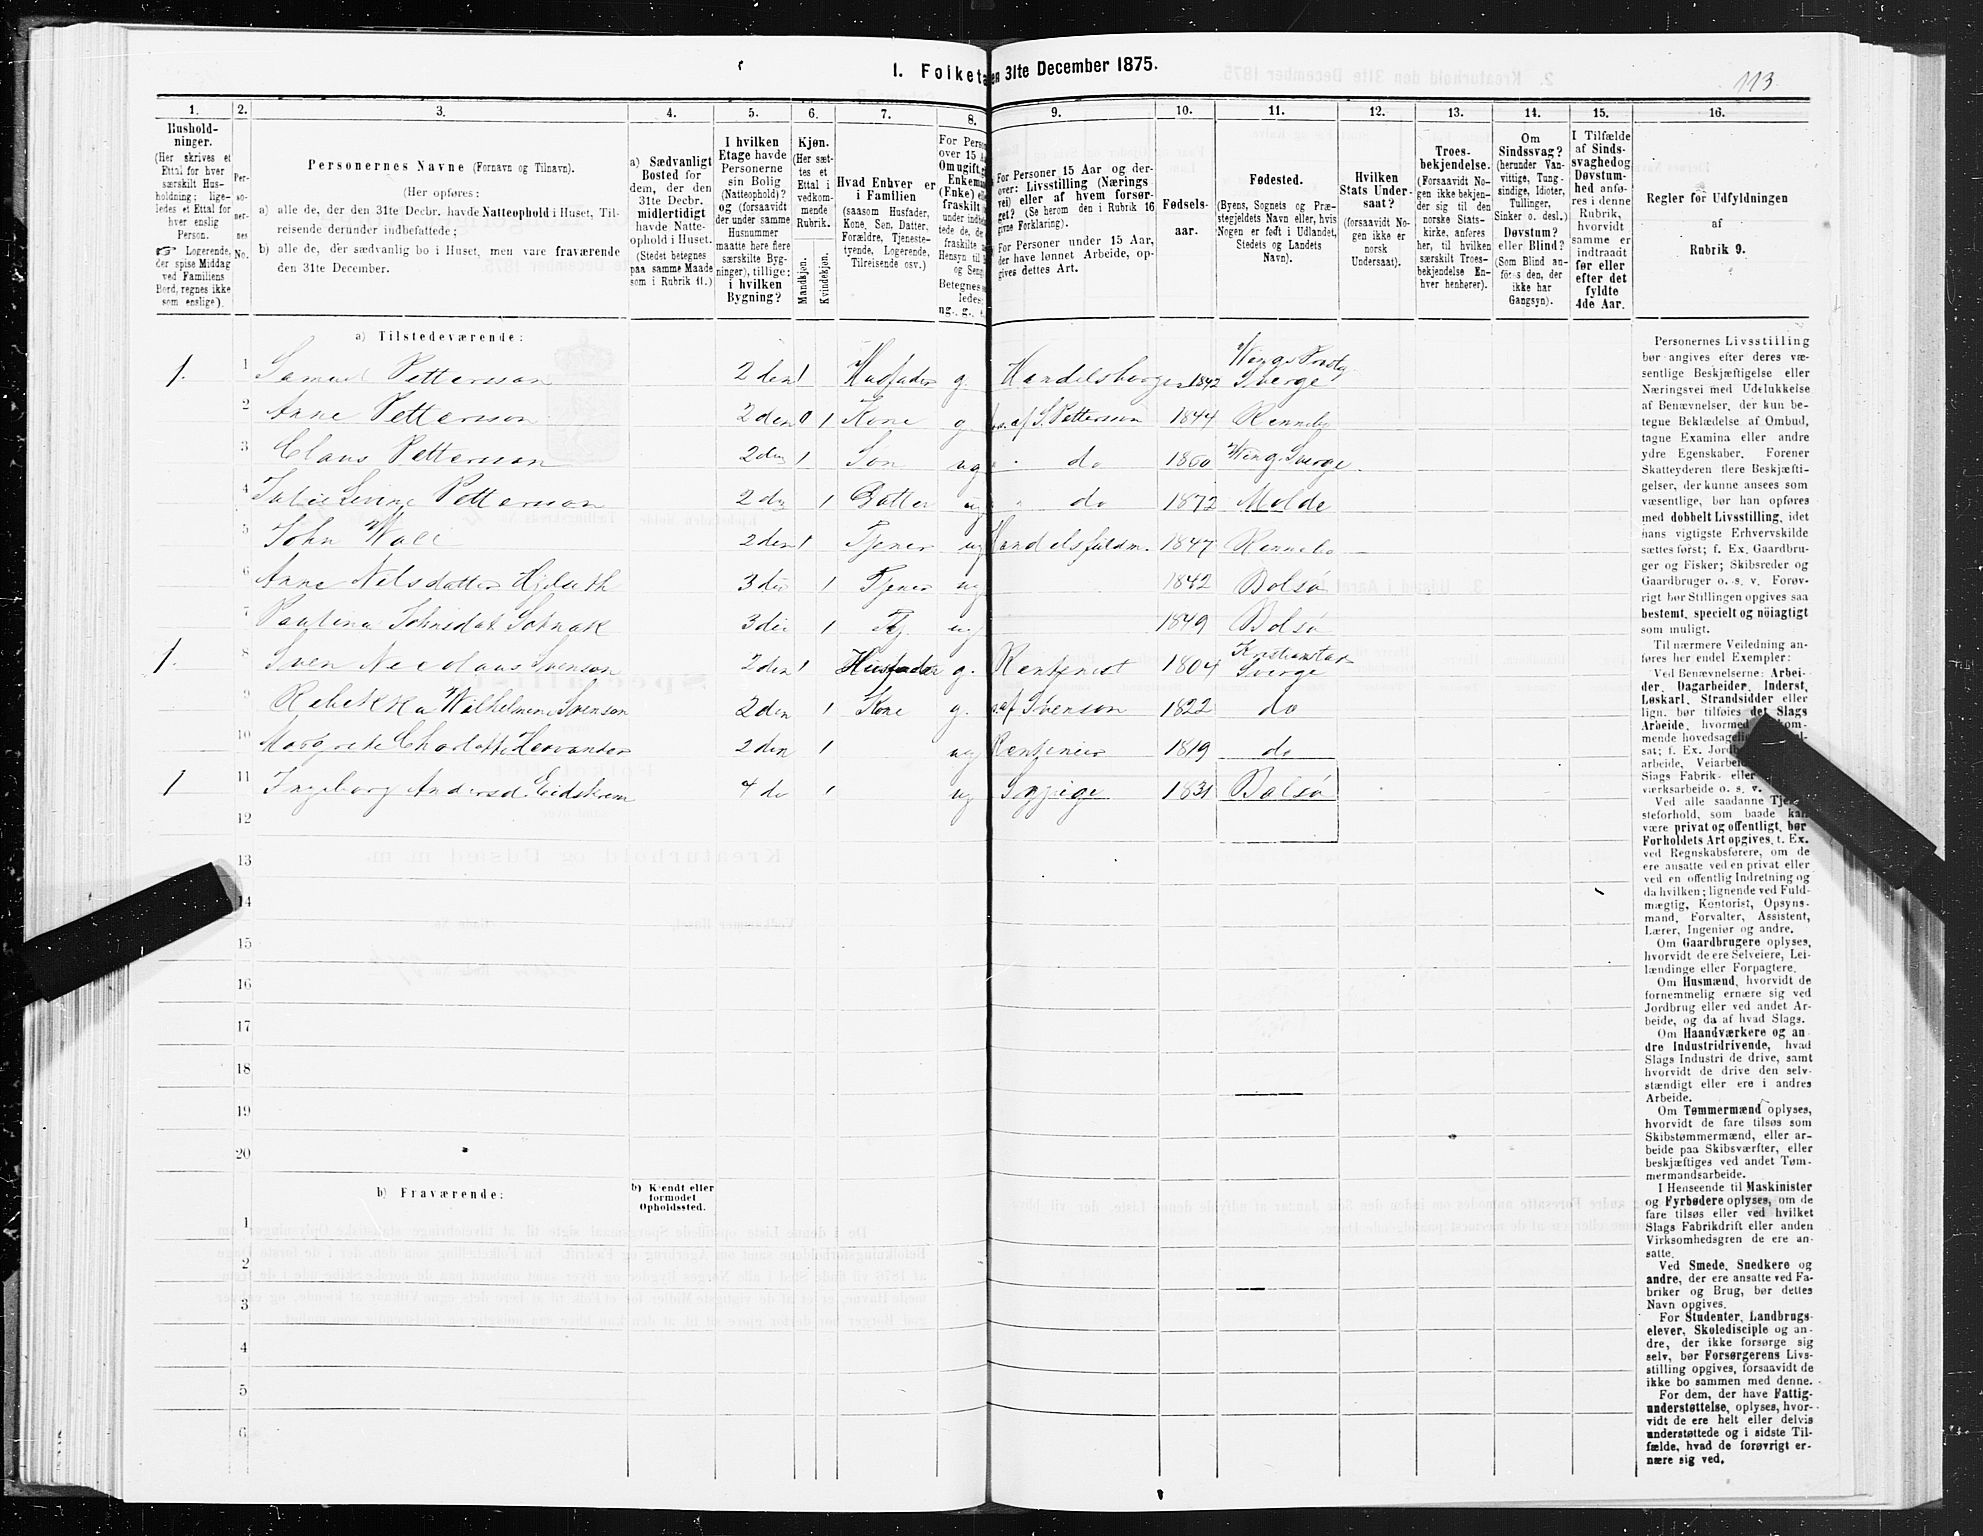 1. Folketa en 31te December 1875.
113
1. 2. 3. 4. 5. 6. 7. 8. 9. 10. 11. 12. 13. 14. 15. 16.
Hushold-
ninger.
(Her skrives et
Ettal for hver
særskilt Hus-
holdning; lige-
ledes et Ettal for
hver enslig
Person.
☞ Logerende,
der spise Middag
ved Familiens
Bord, regnes ikke
som enslige).
Per-
so-
ner-
nes
No.
Personernes Navne (Fornavn og Tilnavn).
(Her opføres:
a) alle de, der den 31te Decbr. havde Natteophold i Huset, Til-
reisende derunder indbefattede;
b) alle de, der sædvanlig bo i Huset, men vare fraværende
den 31te December.
a) Sædvanligt
Bosted for
dem, der den
31te Decbr.
midlertidigt
havde Natte-
ophold i Huset.
(Stedet betegnes
paa samme Maade
som i Rubrik 11.)
I hvilken
Etage havde
Personerne
sin Bolig
(Natteophold)?
og (forsaavidt
der under samme
Husnummer
maatte høre flere
særskilte Byg-
ninger), tillige:
i hvilken
Bygning?
Kjøn.
(Her sæt-
tes et
Ettal i
vedkom-
mende
Rubrik.
Mandkjøn.
Kvindekjøn.
Hvad Enhver er
i Familien
(saasom Husfader,
Kone, Søn, Datter,
Forældre, Tjeneste-
tyende, Logerende,
Tilreisende osv.)
For Person
over 15 A
Om ugift, g
Enkem
(Enke) el
fraskilt
under indb
tede de, d
fraskilte
Hensyn til
og Seng
Betegnes s
ledes:
ug., g.,
For Personer 15 Aar og der-
over: Livsstilling (Nærings
vei) eller af hvem forsør-
get? (Se herom den i Rubrik 16
givne Forklaring).
For Personer under 15 Aar,
der have lønnet Arbeide, op-
gives dettes Art.
Fødsels-
aar.
Fødested.
(Byens, Sognets og Præ-
stegjeldets Navn eller, hvis
Nogen er født i Udlandet,
Stedets og Landets
Navn).
Hvilken
Stats Under-
saat?
(forsaavidt No-
gen ikke er
norsk
Undersaat).
Troes-
bekjendelse.
(Forsaavidt No-
gen ikke bekjen-
der sig til den
norske Stats-
kirke, anføres
her, til hvilken
særskilt Troes-
bekjendelse En-
hver henhører).
Om
Sindssvag?
(herunder Van-
vittige, Tung-
sindige, Idioter,
Tullinger,
Sinker o. desl.)
Døvstum?
eller Blind?
(Som Blind an-
føres den, der
ikke har
Gangsyn).
I Tilfælde
af Sinds-
svaghedog
Døvstum-
hed anfø-
res i denne
Rubrik,
hvorvidt
samme er
indtraadt
før eller
efter det
fyldte
4de Aar.
Regler for Udfyldningen
af
Rubrik 9.
a) Tilstedeværende:
1. 1 Samuel Pettersson 2den 1 Husfader g. Handelsborger 1842 Sverge
2 Anne Petterson 2den 0 1 Kone g. af S. Petterson 1844 Renneby
3 Claus Petterson 2den 1 Søn ug do 1860 Wing Sverge
4 Julie Petterson 2den 1 Datter ug " do 1872 Molde
5 John Wall 2den 1 Tjener ug Handelsfuldm. 1847 Renneby
6 Anne Nelsdatter Hjelseth 3die 1 Tjener ug 1842 Bolsø
7 Paulina Johnsdat 3die 1 Tj. ug 1849 Bolsø
1. 8 Sven Nicolaus Svenson 2den 1 Husfader g. Rentenist 1804 Kristianstad
Sverge
Rebekka Wilhelmine Svenson 2den 1 Kone g. af Svenson 1822 do
10 Margrete Charlotte 2den 1 ug Rentenier 1819 do
1 11 Ingeborg Andersd. Eidskrem 4de 1 ug Sypige 1831 Bolsø
12
13
14
15
16
17
18
19
20
b) Fraværende:
b) Kjendt eller
formodet
Opholdssted.
1
2
3
4
5
6
Personernes Livsstilling
bør angives efter deres væ-
sentlige Beskjæftigelse eller
Næringsvei med Udelukkelse
af Benævnelser, der kun be-
tegne Beklædelse af Ombud,
tagne Examina eller andre
ydre Egenskaber. Forener
Skatteyderen flere Beskjæfti-
gelser, der kunne ansees som
væsentlige, bør han opføres
med dobbelt Livsstilling, idet
hans vigtigste Erhvervskilde
sættes først; f. Ex. Gaardbru-
ger og Fisker; Skibsreder og
Gaardbruger o. s. v. Forøv-
rigt bør Stillingen opgives saa
bestemt, specielt og nöiagtigt
som muligt.
Til nærmere Veiledning an-
føres her endel Exempler:
Ved Benævnelserne: Arbei-
der, Dagarbeider, Inderst,
Løskarl, Strandsidder eller
lign. bør tilføies det Slags
Arbeide, hvormed
mende hovedsagelig
sat; f. Ex. Jordbr
arbeide, Veiarbei
Slags Fabrik- eller
værksarbeide o. s. v.
Ved alle saadanne Tje
steforhold, som baade kan
være privat og offentligt, bør
Forholdets Art opgives, t. Ex.
ved Regnskabsførere, om de
ere ansatte ved en privat eller
ved en offentlig Indretning og
da hvilken; lignende ved Fuld-
mægtig, Kontorist, Opsyns-
mand, Forvalter, Assistent,
Lærer, Ingeniør og andre.
Om Gaardbrugere oplyses,
hvorvidt de ere Selveiere, Lei-
lændinge eller Forpagtere.
Om Husmænd, hvorvidt de
fornemmelig ernære sig ved
Jordbrug eller ved andet Ar-
beide, og da af hvad Slags.
Om Haandværkere og an
dre Industridrivende, hvad
Slags Industri de drive, samt
hvorvidt de drive den selv-
stændigt eller ere i andres
Arbeide.
Om Tømmermænd oplyses,
hvorvidt de fare tilsøs som
Skibstømmermænd, eller ar-
beide paa Skibsværfter, eller
beskjæftiges ved andet Tøm-
mermandsarbeide.
I Henseende til Maskinister
og Fyrbødere oplyses, om de
fare tilsøs eller ved hvilket
Slags Fabrikdrift eller anden
Virksomhedsgren de ere an-
satte.
Ved Smede, Snedkere og
andre, der ere ansatte ved Fa-
briker og Brug, bør dettes
Navn opgives.
For Studenter, Landbrugs-
elever, Skoledisciple og an-
dre, der ikke forsørge sig
selv, bør Forsørgerens Livs-
stilling opgives, forsaavidt de
ikke bo sammen med denne.
For dem, der have Fattig-
understøttelse, oplyses, hvor-
vidt de ere helt eller delvis
understøttede og i sidste Til-
fælde, hvad de forøvrigt er-
nære sig ved.